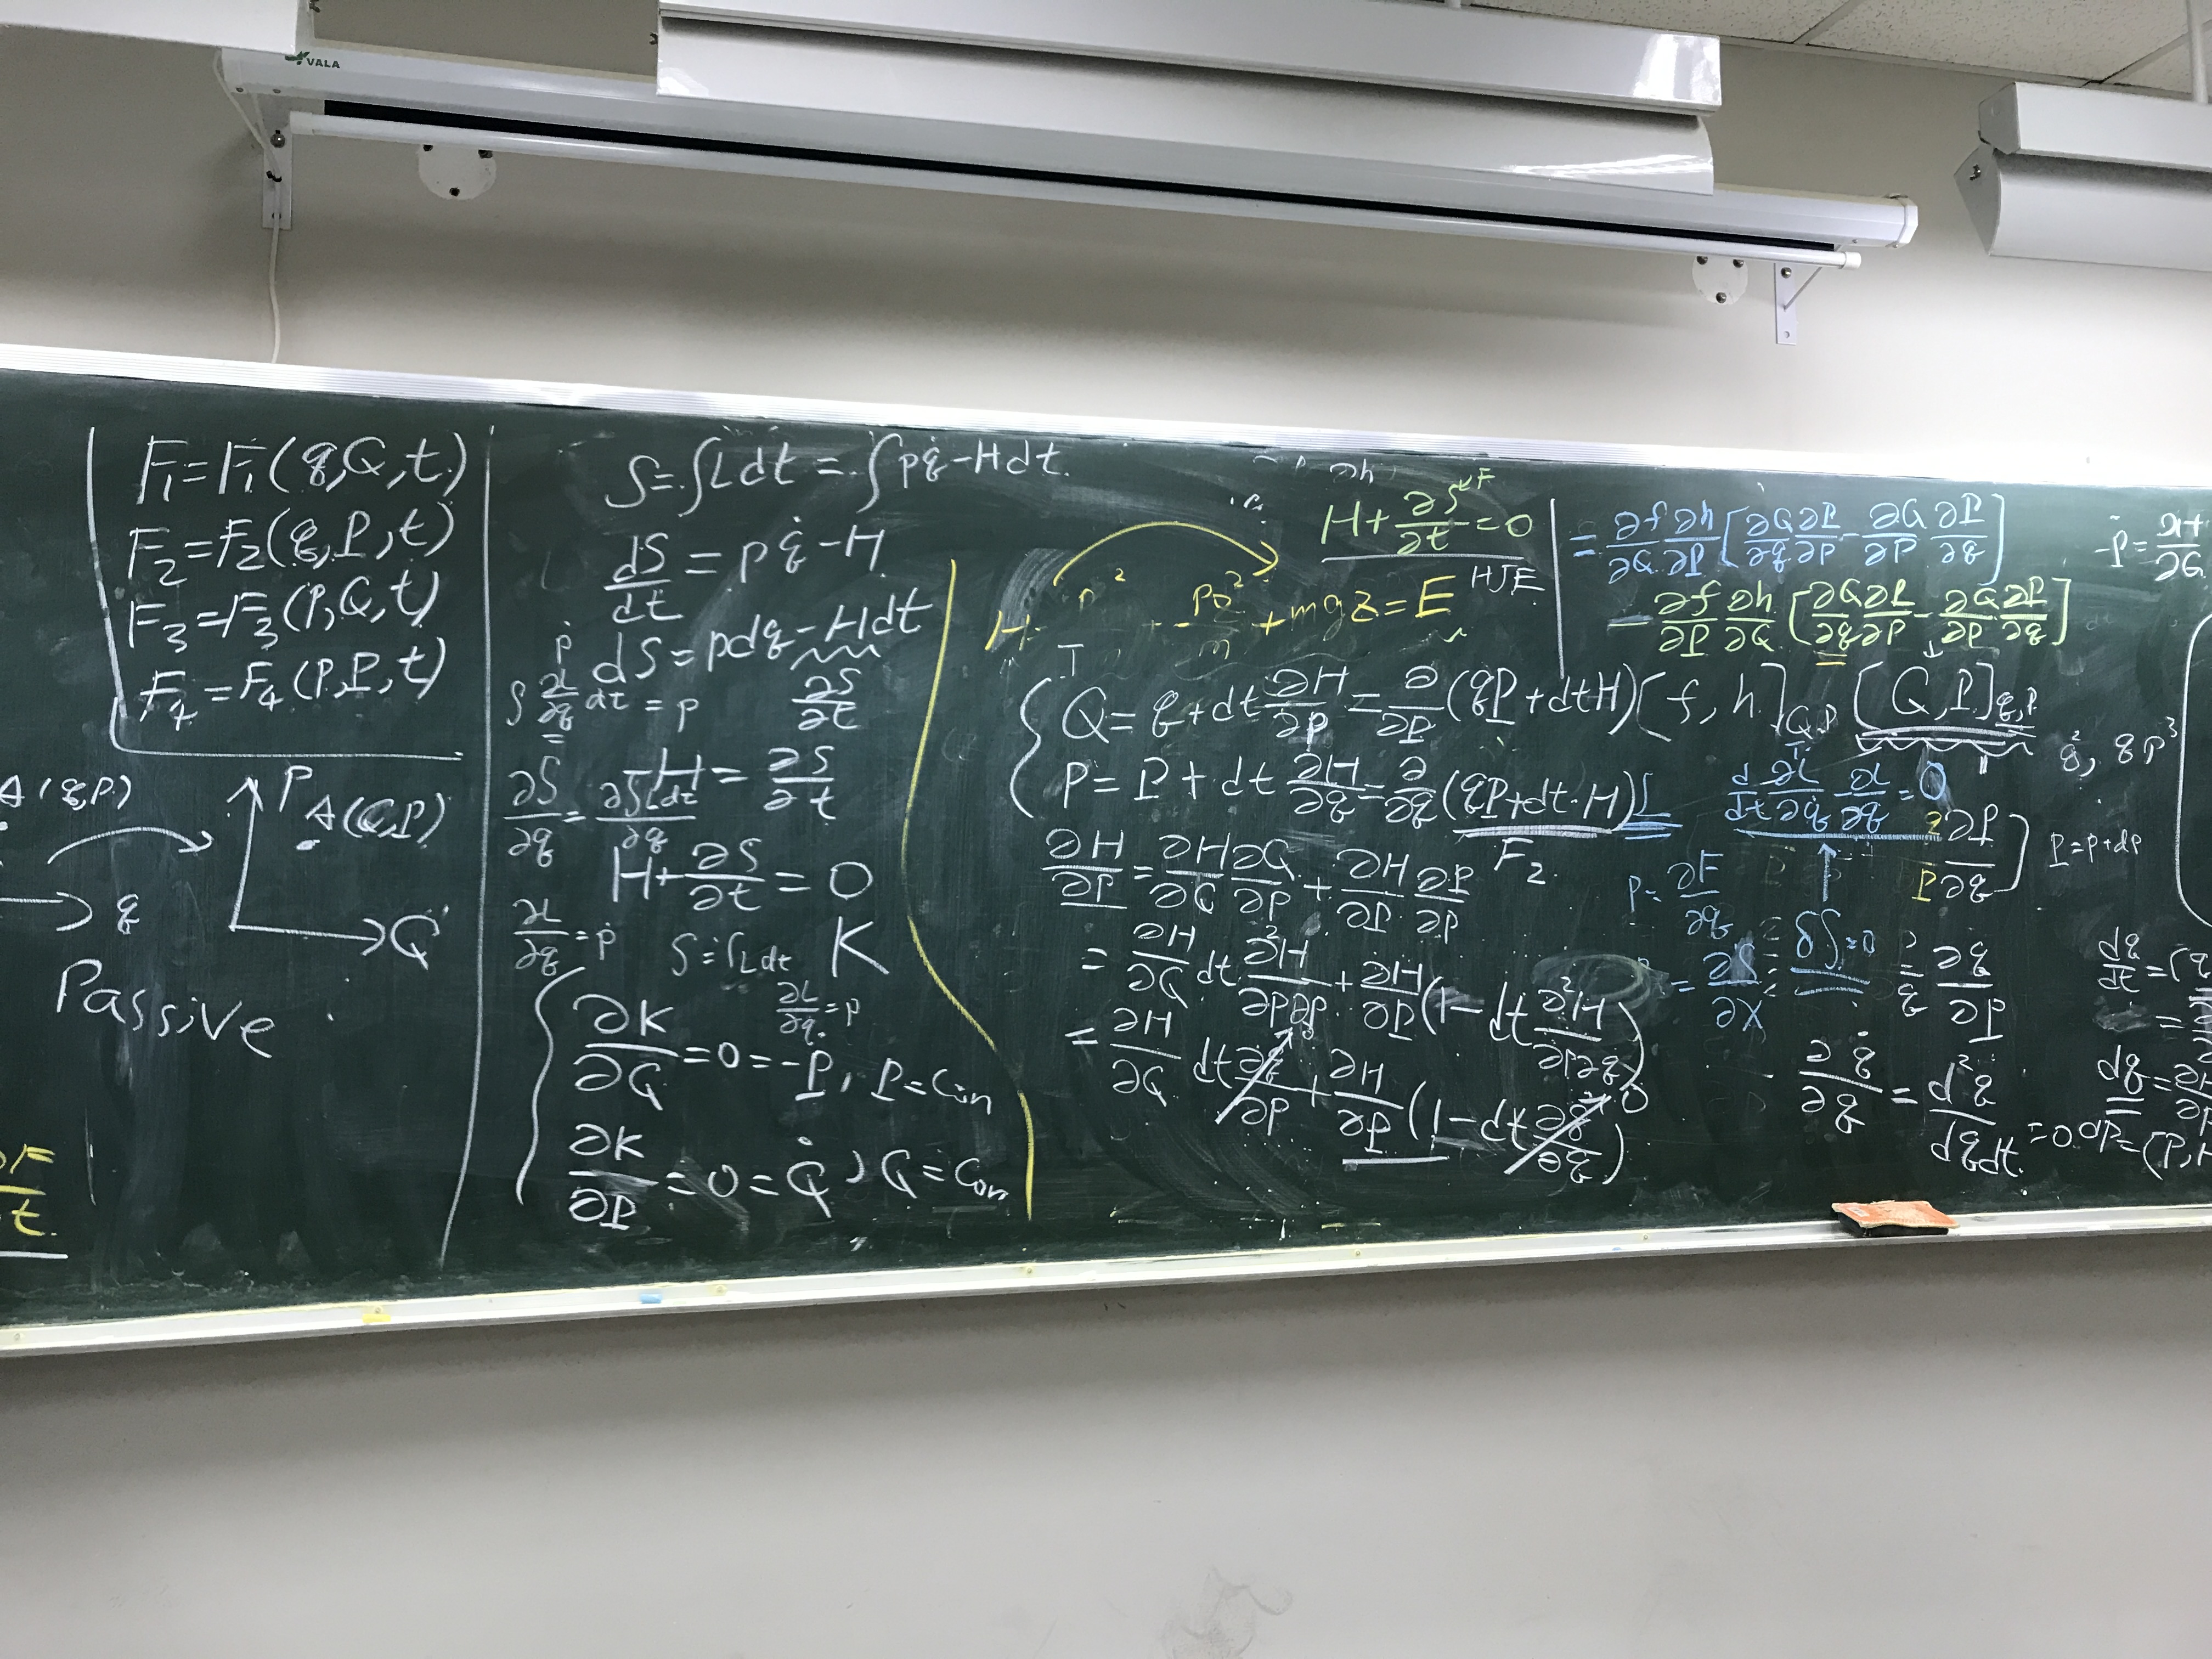 VALA
F₁=F₁(q,Q,t)
F₂=F₂(q,P,t)
F₃=F₃(p,Q,t)
F₄=F₄(p,P,t)
A(q,p)
P
A(Q,P)
q
Q
Passive
∂F
t
S=∫Ldt=∫pq̇-Hdt
dS/dt=pq̇-H
ṗ
dS=pdq-Hdt
∫∂L/∂q dt=p
∂S/∂t
∂S/∂q=∂∫Ldt/∂q
-H=∂S/∂t
H+∂S/∂t=0
∂L/∂q=ṗ
S=∫Ldt
K
∂L/∂q̇=p
∂K/∂Q=0=-Ṗ, P=Con
∂K/∂P=0=Q̇, Q=Con
H+∂S/∂t=0
F
HJE
+mgz=E
Q=q+dt∂H/∂p=∂/∂P(qP+dtH)
p=P+dt∂H/∂q=∂/∂q(qP+dt·H)
F₂
∂H/∂p=∂H/∂Q ∂Q/∂p+∂H/∂P ∂P/∂p
=∂H/∂Q dt∂²H/∂p∂p+∂H/∂P(1-dt∂²H/∂p∂q)
=∂H/∂Q dt∂q̇/∂p+∂H/∂P(1-dt∂q̇/∂q)
0
=∂f/∂Q ∂h/∂P[∂Q/∂q ∂P/∂p-∂Q/∂p ∂P/∂q]
-∂f/∂P ∂h/∂Q[∂Q/∂q ∂P/∂p-∂Q/∂p ∂P/∂q]
[f,h]Q,P [Q,P]q,p
1
q², qp³
L
d/dt ∂L/∂q̇-∂L/∂q=0
∂P/∂q]
P=p+dp
p=∂F/∂q
=∂S/∂X
δS=0
∂q̇/∂p
∂q̇/∂q=d²q/dqdt=0
-Ṗ=∂H/∂Q
dq/dt=
dq=
dP=(P,H